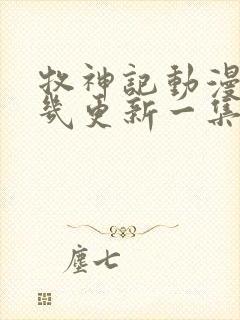 牧神記動漫
幾更新一集
塵七